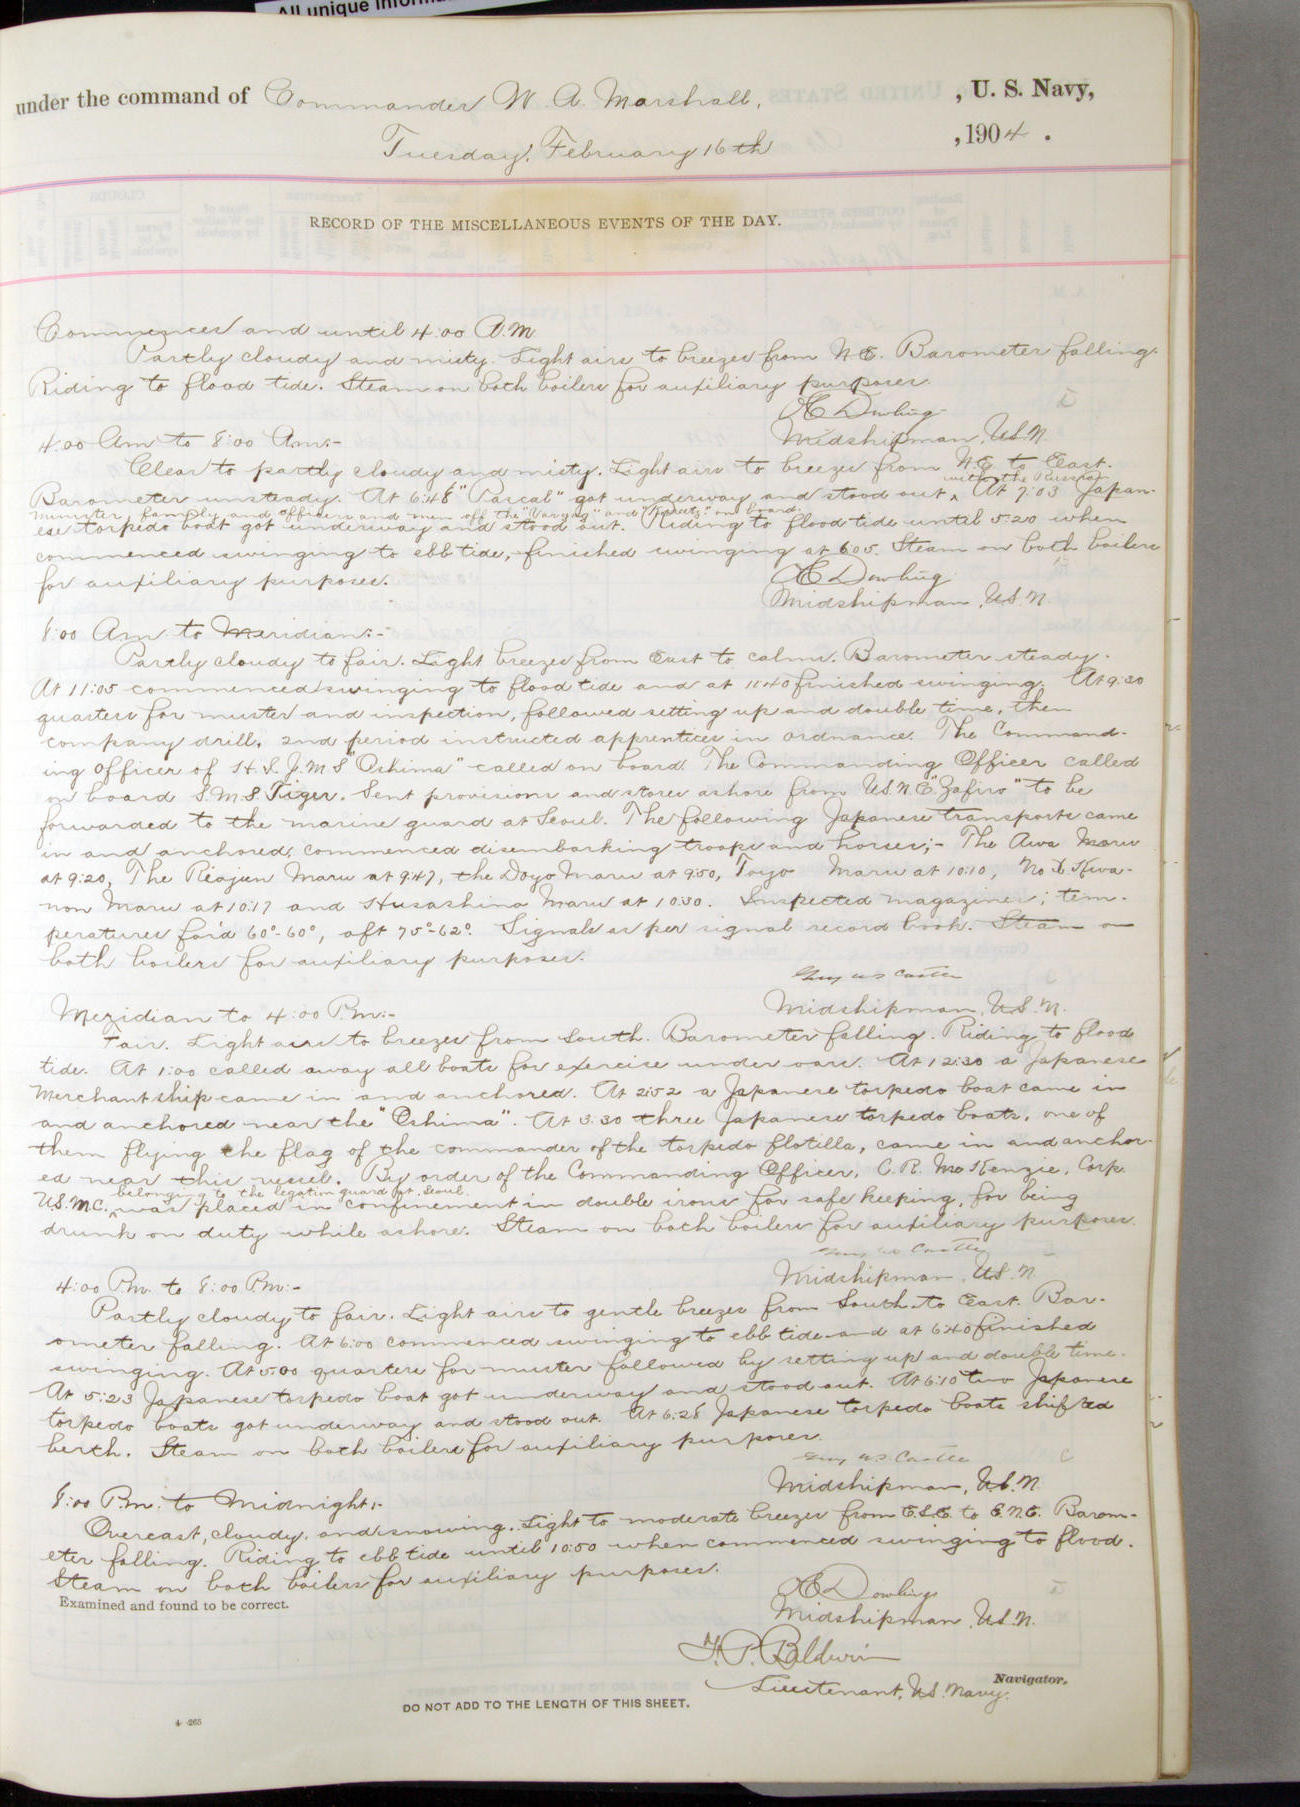 All unique informa
under the command of Commander W. A. Marshall, , U. S. Navy,
Tuesday, February 16th , 1904 .
RECORD OF THE MISCELLANEOUS EVENTS OF THE DAY.
Commences and until 4:00 A.M
Partly cloudy and misty. Light airs to breezes from N.E. Barometer falling.
Riding to flood tide. Steam on both boilers for auxiliary purposes.
Dowling
Midshipman, U.S.N.
4:00 Am to 8:00 Am:-
Clear to partly cloudy and misty. Light airs to breezes from N.E. to East.
with the Russian
Barometer unsteady. At 6:48 "Pascal" got underway and stood out ^ At 7:03 Japan-
minister, family and officers and men off the "Varyag" and "Koretz" on board.
ese torpedo boat got underway and stood out. Riding to flood tide until 5:20 when
commenced swinging to ebb tide, finished swinging at 6:05. Steam on both boilers
for auxiliary purposes.
Dowling
Midshipman, U.S.N.
8:00 Am. to Meridian:-
Partly cloudy to fair. Light breezes from East to calms. Barometer steady.
At 11:05 commenced swinging to flood tide and at 11:40 finished swinging. At 9:30
quarters for muster and inspection, followed setting up and double time, then
company drill, 2nd period instructed apprentices in ordnance. The Command-
ing Officer of H.I.J.M.S "Oshima" called on board The Commanding Officer called
on board S.M.S Tiger. Sent provisions and stores ashore from U.S.N. "Zafiro" to be
forwarded to the marine guard at Seoul. The following Japanese transports came
in and anchored, commenced disembarking troops and horses;- The Awa Maru
at 9:20, The Riojun Maru at 9:47, the Doyo Maru at 9:50, Toyo Maru at 10:10, No Kwa-
non Maru at 10:17 and Husashina Maru at 10:30. Inspected magazines; tem-
peratures for'd 60°-60°, aft 75°-62°. Signals as per signal record book. Steam on
both boilers for auxiliary purposes.
Guy W S Castle
Midshipman, U.S.N.
Meridian to 4:00 P.m:-
Fair. Light airs to breezes from South. Barometer falling. Riding to flood
tide. At 1:00 called away all boats for exercise under oars. At 12:30 a Japanese
Merchant ship came in and anchored. At 2:52 a Japanese torpedo boat came in
and anchored near the "Oshima". At 3:30 three Japanese torpedo boats, one of
them flying the flag of the commander of the torpedo flotilla, came in and anchor-
ed near this vessel. By order of the Commanding Officer, C.R. McKenzie, Corp.
belonging to the legation guard at Seoul
U.S.M.C. ^ was placed in confinement in double irons for safe keeping, for being
drunk on duty while ashore. Steam on both boilers for auxiliary purposes.
Guy W S Castle
Midshipman, U.S.N.
4:00 P.m. to 8:00 P.m:-
Partly cloudy to fair. Light airs to gentle breezes from South to East. Bar-
ometer falling. At 6:00 commenced swinging to ebb tide and at 6:40 finished
swinging. At 5:00 quarters for muster followed by setting up and double time.
At 5:23 Japanese torpedo boat got underway and stood out. At 6:10 two Japanese
torpedo boats got underway and stood out. At 6:28 Japanese torpedo boats shifted
berth. Steam on both boilers for auxiliary purposes.
Guy W S Castle
Midshipman, U.S.N.
8:00 P.m: to Midnight:-
Overcast, cloudy, and snowing. Light to moderate breezes from E.S.E. to E.N.E. Barom-
eter falling. Riding to ebb tide until 10:50 when commenced swinging to flood.
Steam on both boilers for auxiliary purposes.
Examined and found to be correct.
Dowling
Midshipman, U.S.N.
F. P. Baldwin
Lieutenant, U.S. Navy. Navigator.
DO NOT ADD TO THE LENGTH OF THIS SHEET.
4-265